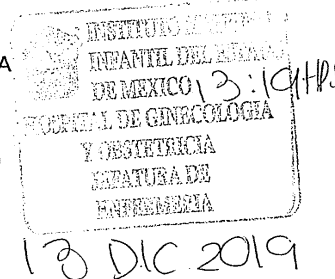 A
INSTITUTO
INFANTIL DEL ESTADO
DE MEXICO 13:19 HRS
HOSPITAL DE GINECOLOGIA
Y OBSTETRICIA
JEFATURA DE
ENFERMERIA
13 DIC 2019